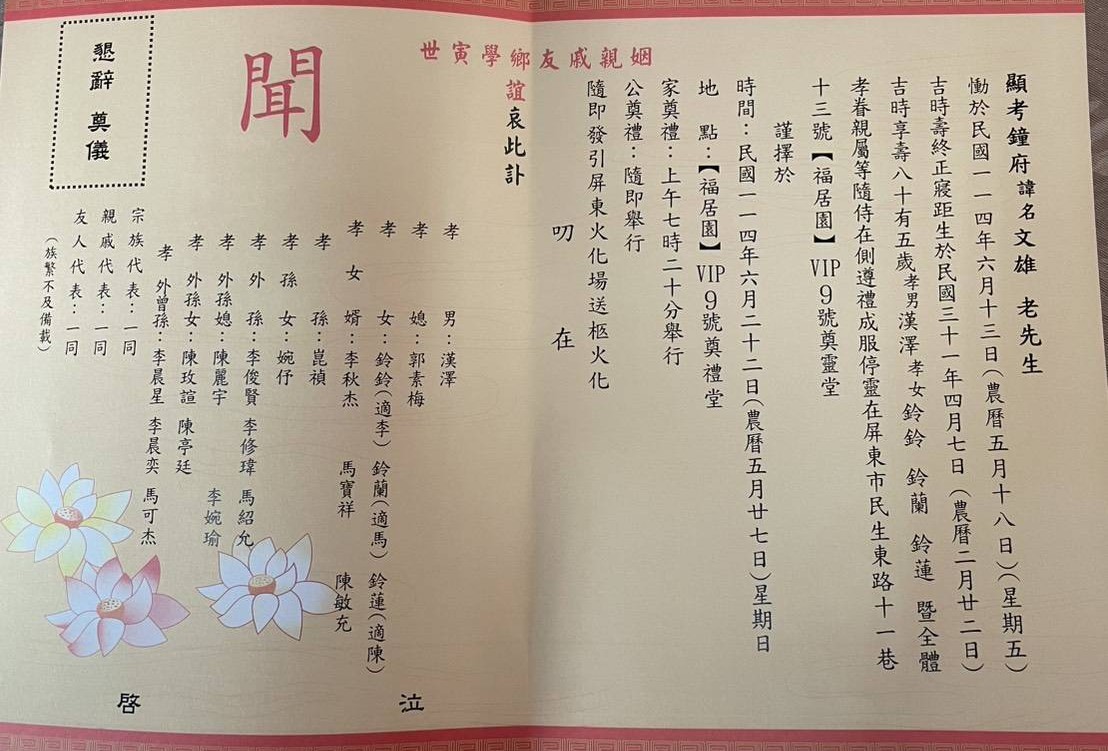 顯考鐘府諱名文雄　老先生
慟於民國一一四年六月十三日(農曆五月十八日)(星期五)
吉時壽終正寢距生於民國三十一年四月七日(農曆二月廿二日)
吉時享壽八十有五歲孝男漢澤 孝女鈴鈴　鈴蘭　鈴蓮　暨全體
孝眷親屬等隨侍在側遵禮成服停靈在屏東市民生東路十一巷
十三號【福居園】VIP 9號奠靈堂
謹擇於
時間：民國一一四年六月二十二日(農曆五月廿七日)星期日
地　點：【福居園】VIP 9號奠禮堂
家奠禮：上午七時二十分舉行
公奠禮：隨即舉行
隨即發引屏東火化場送柩火化
叨　在
世寅學鄉友戚親姻
誼哀此訃
聞
孝　男：漢澤
孝　媳：郭素梅
孝　女：鈴鈴(適李)　鈴蘭(適馬)　鈴蓮(適陳)
孝　女　婿：李秋杰　馬寶祥　陳敏充
孝　孫：崑禎
孝　孫　女：婉伃
孝　外　孫：李俊賢　李修瑋　馬紹允
孝　外孫媳：陳麗宇　李婉瑜
孝　外孫女：陳玫諠　陳亭廷
孝　外曾孫：李晨星　李晨奕　馬可杰
宗族代表：一同
親戚代表：一同
友人代表：一同
(族繁不及備載)
泣　啓
懇辭　奠儀